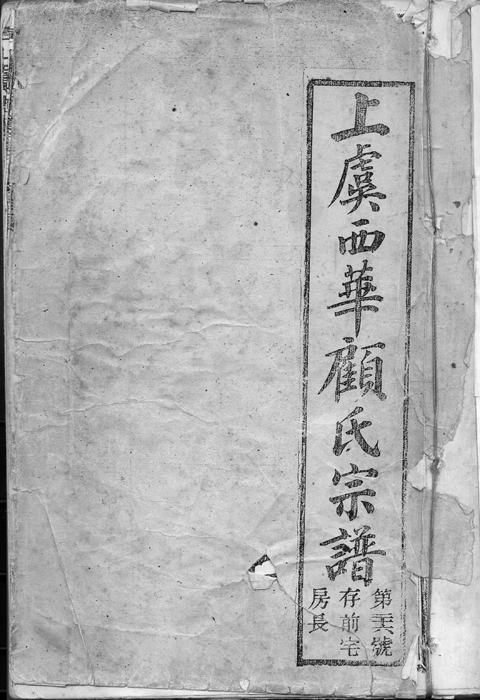 上虞西華顧氏宗譜
第三六號
存前宅
房長